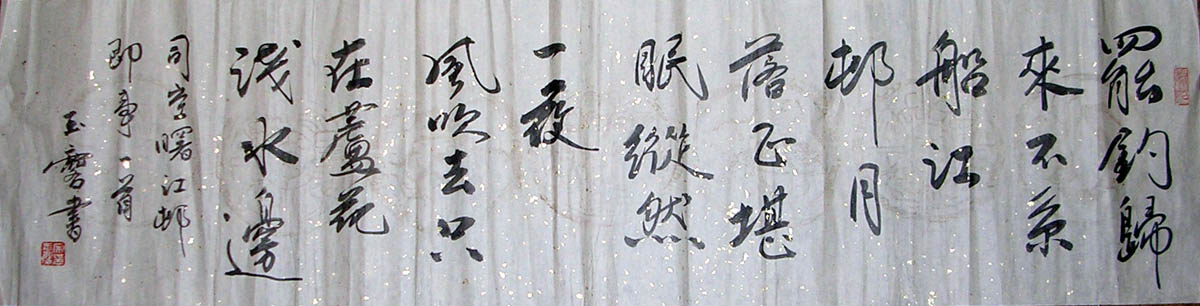 罷釣歸
來不系
船江
邨月
落正堪
眠縱然
一夜
風吹去只
在蘆花
淺水邊
司空曙江邨
即事一首
玉書